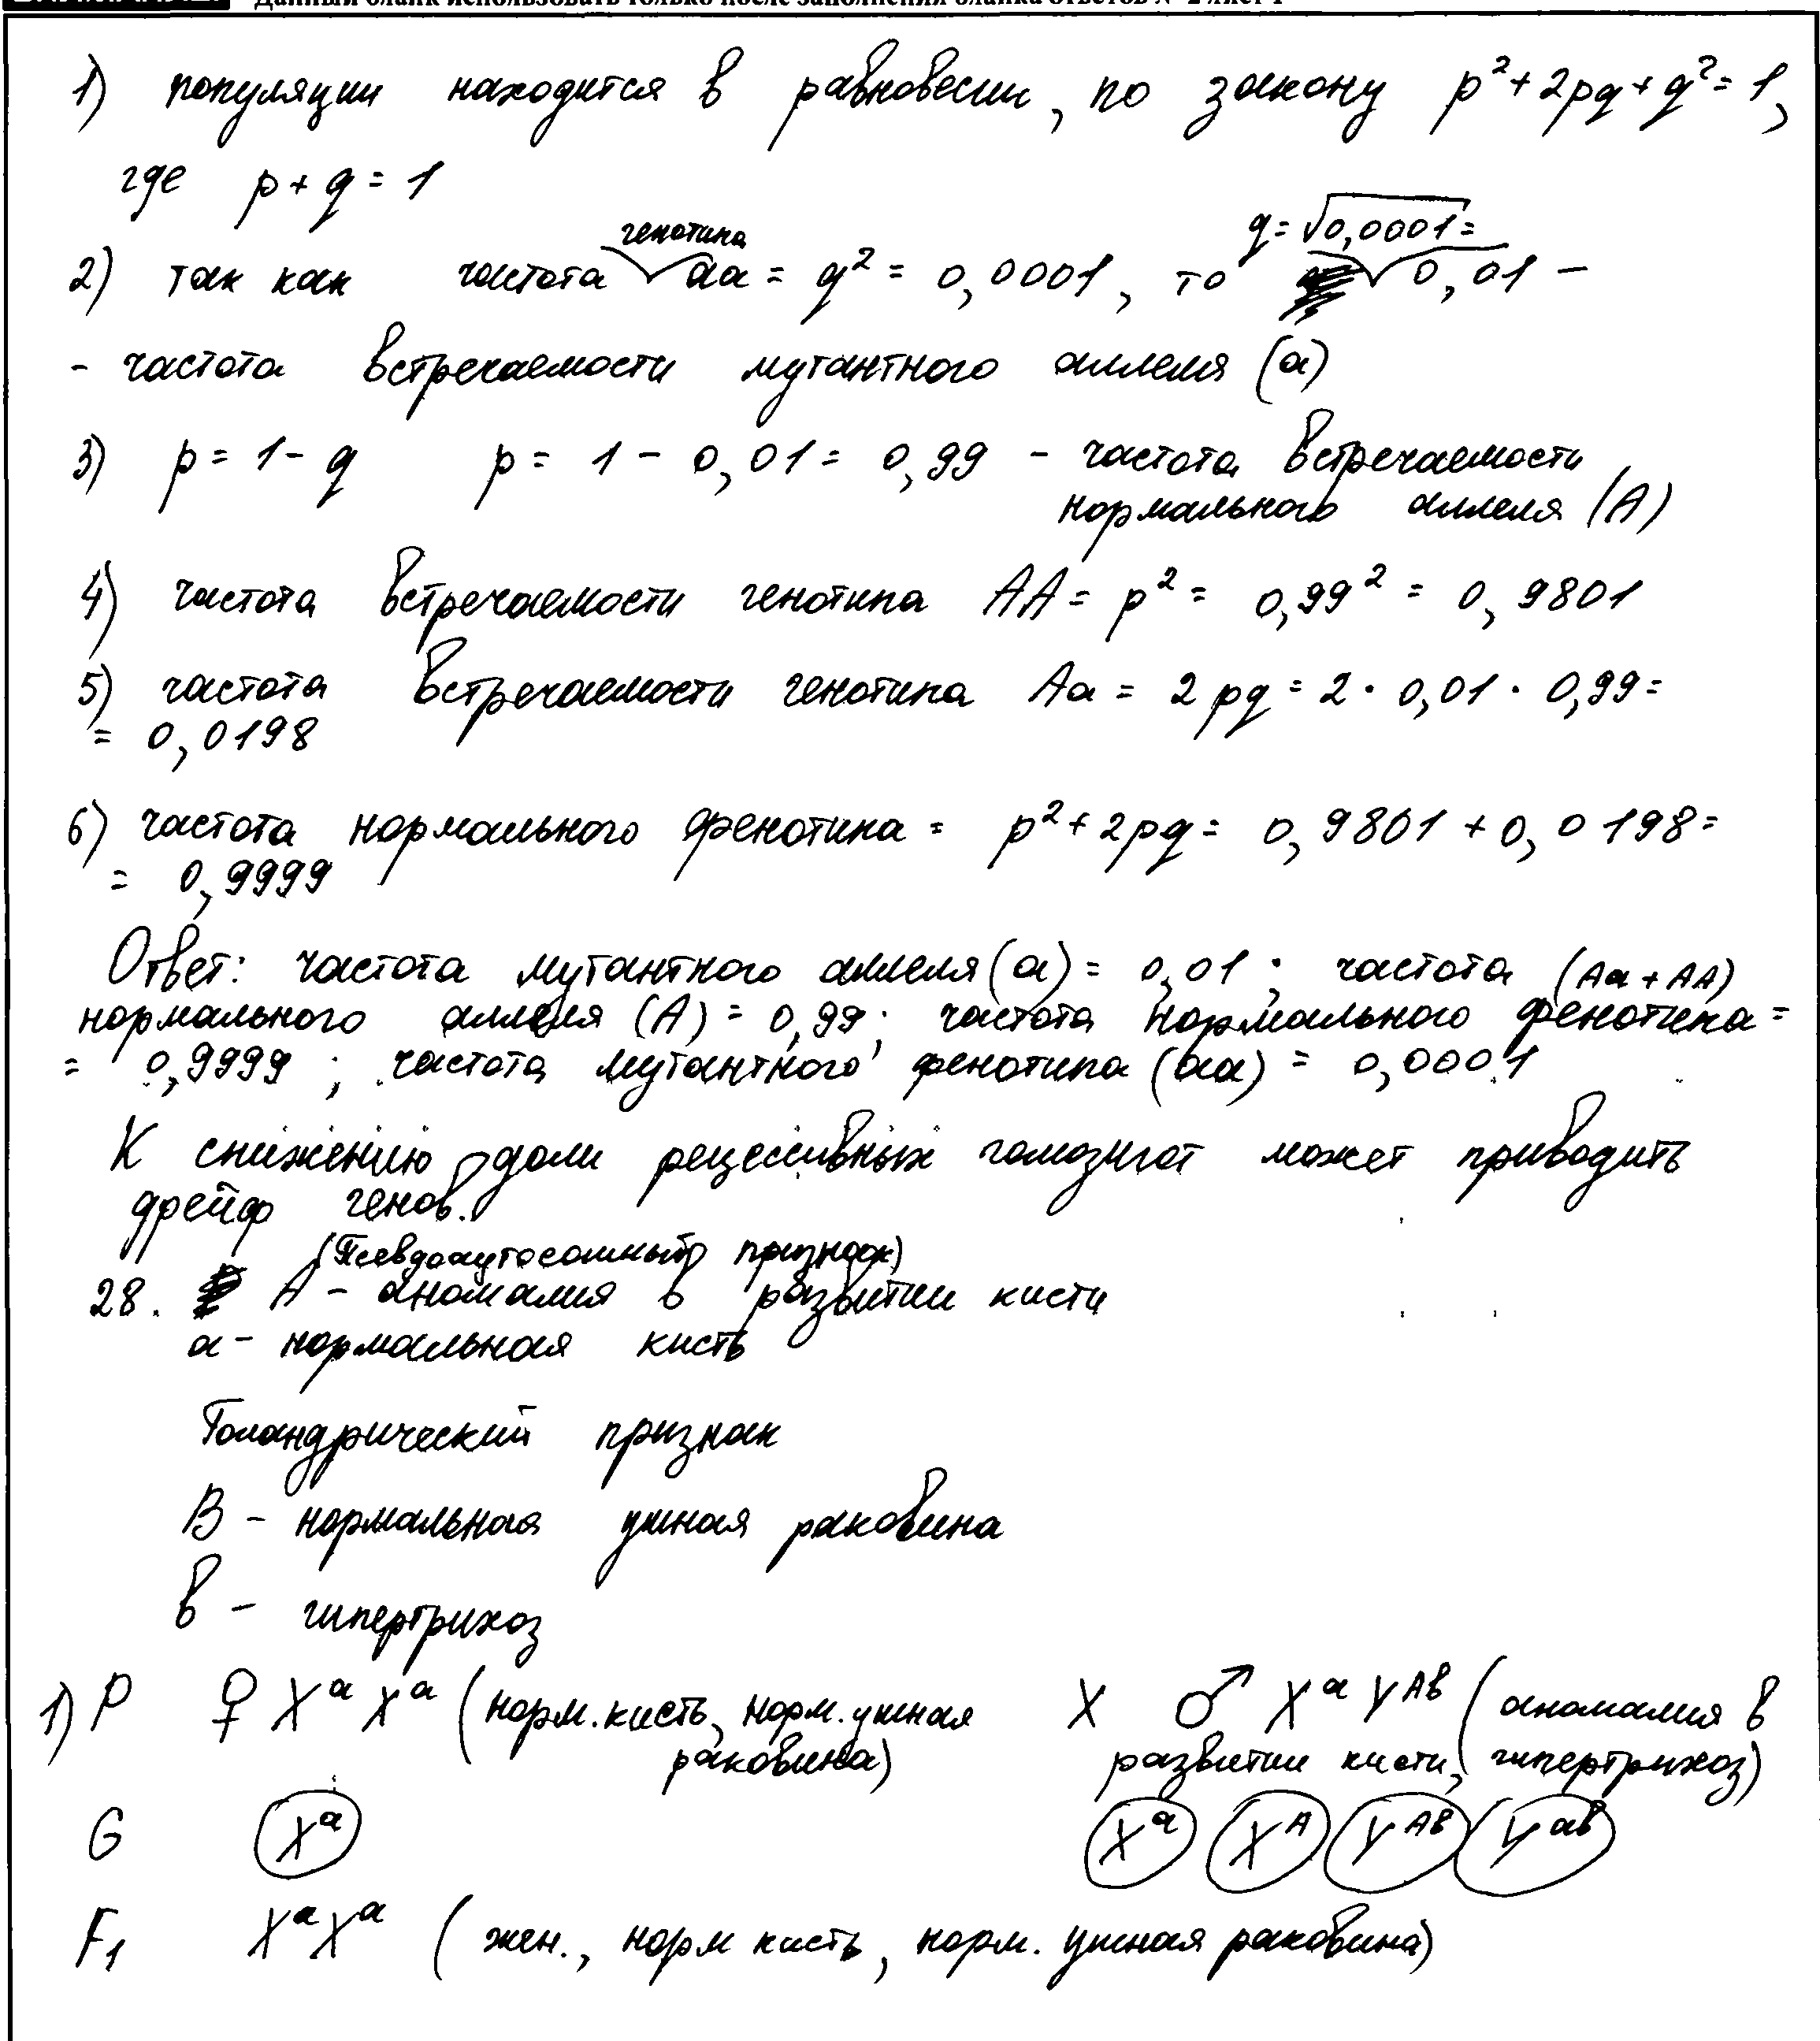 Данный бланк использовать только после заполнения бланка ответов № 2 лист 1
1) популяции находится в равновесии, по закону p²+2pq+q²=1,
где p+q=1
2) так как частота генотипа aa = q² = 0,0001, то q=√0,0001= 0,01 –
- частота встречаемости мутантного аллеля (a)
3) p = 1 - q p = 1 - 0,01 = 0,99 - частота встречаемости
нормального аллеля (A)
4) частота встречаемости генотипа AA = p² = 0,99² = 0,9801
5) частота встречаемости генотипа Aa = 2pq = 2 · 0,01 · 0,99 =
= 0,0198
6) частота нормального фенотипа = p²+2pq = 0,9801 + 0,0198 =
= 0,9999
Ответ: частота мутантного аллеля (a) = 0,01 ; частота
нормального аллеля (A) = 0,99; частота нормального фенотипа (Aa + AA) =
= 0,9999 ; частота мутантного фенотипа (aa) = 0,0001
К снижению доли рецессивных гомозигот может приводить
дрейф генов.
(Псевдоаутосомный признак)
28. A – аномалия в развитии кисти
a – нормальная кисть
Голандрический признак
B – нормальная ушная раковина
b – гипертрихоз
1) P ♀ XᵃXᵃ (норм. кисть, норм. ушная раковина) X ♂ XᵃYᴬᵇ (аномалия в
развитии кисти, гипертрихоз)
G Xᵃ Xᵃ Xᴬ Yᴬᵇ Yᵃᵇ
F₁ XᵃXᵃ (жен., норм кисть, норм. ушная раковина)